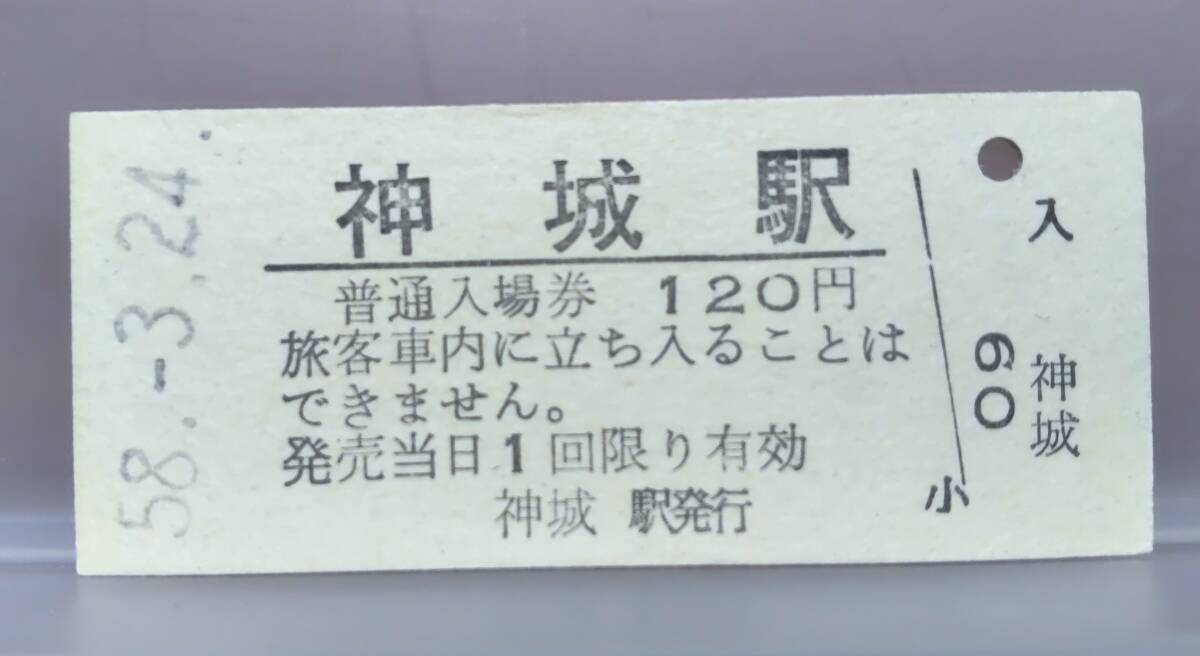 58.-3.24.
神城駅
普通入場券 120円
旅客車内に立ち入ることは
できません。
発売当日1回限り有効
神城 駅発行
小
入
60
神城